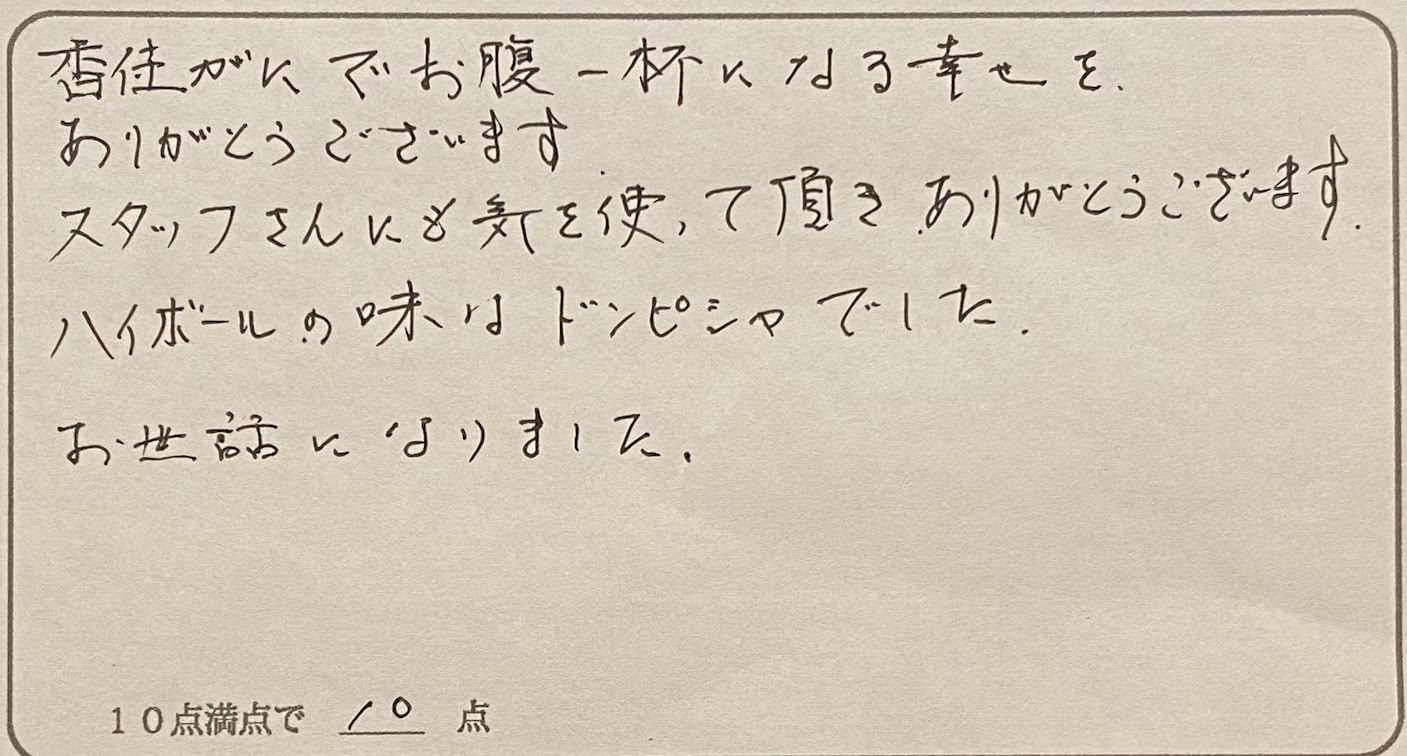 香住がにでお腹一杯になる幸せを.
ありがとうございます
スタッフさんにも気を使って頂きありがとうございます.
ハイボールの味はドンピシャでした.
お世話になりました.
10点満点で 10 点